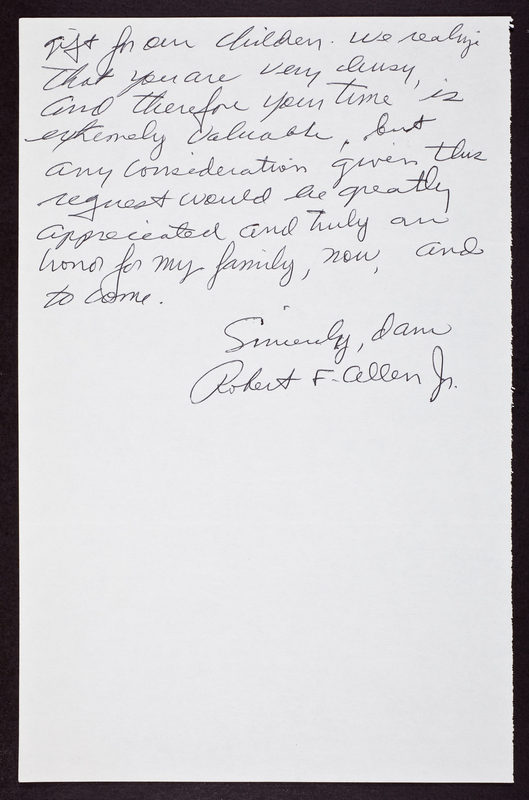 gift for our children. We realize
that you are very busy,
and therefore your time is
extremely valuable, but
any consideration given this
request would be greatly
appreciated and truly an
honor for my family, now, and
to come.
Sincerely, I am
Robert F. Allen Jr.